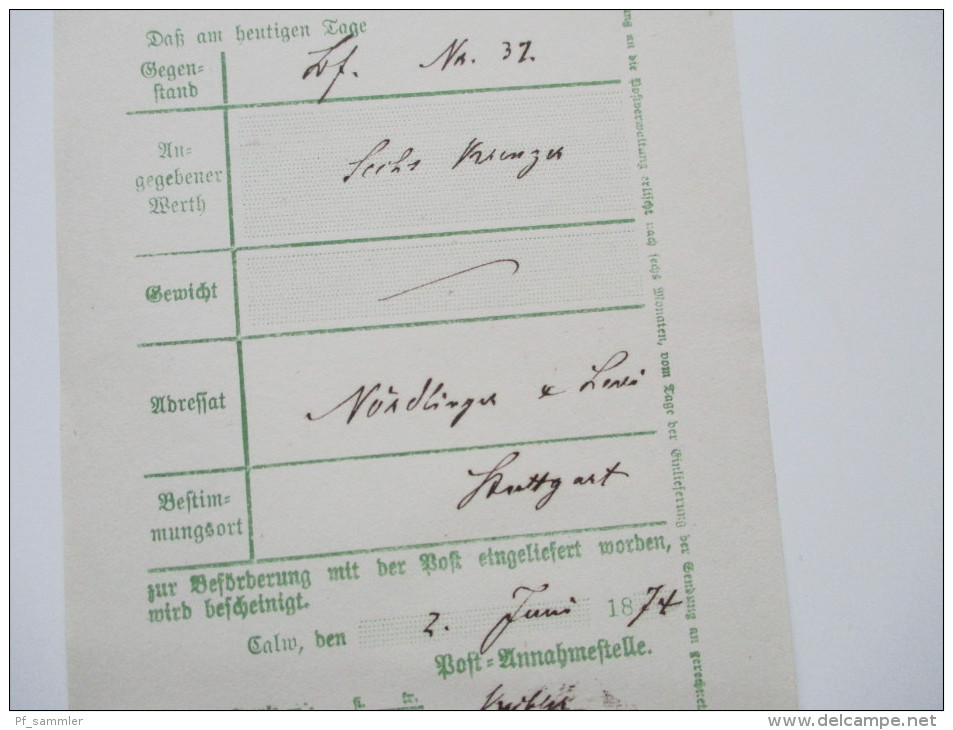 Daß am heutigen Tage
Gegen-
stand
Bf. Nr. 37.
An-
gegebener
Werth
Sechs Kreuzer
Gewicht
Adressat
Nördlinger & Levi
Bestim-
mungsort
Stuttgart
zur Beförderung mit der Post eingeliefert worden,
wird bescheinigt.
Calw, den 2. Juni 1874
Post-Annahmestelle.
an die Postverwaltung erlischt nach sechs Monaten, vom Tage der Einlieferung der Sendung an gerechnet
Pf_sammler
www.delcampe.net